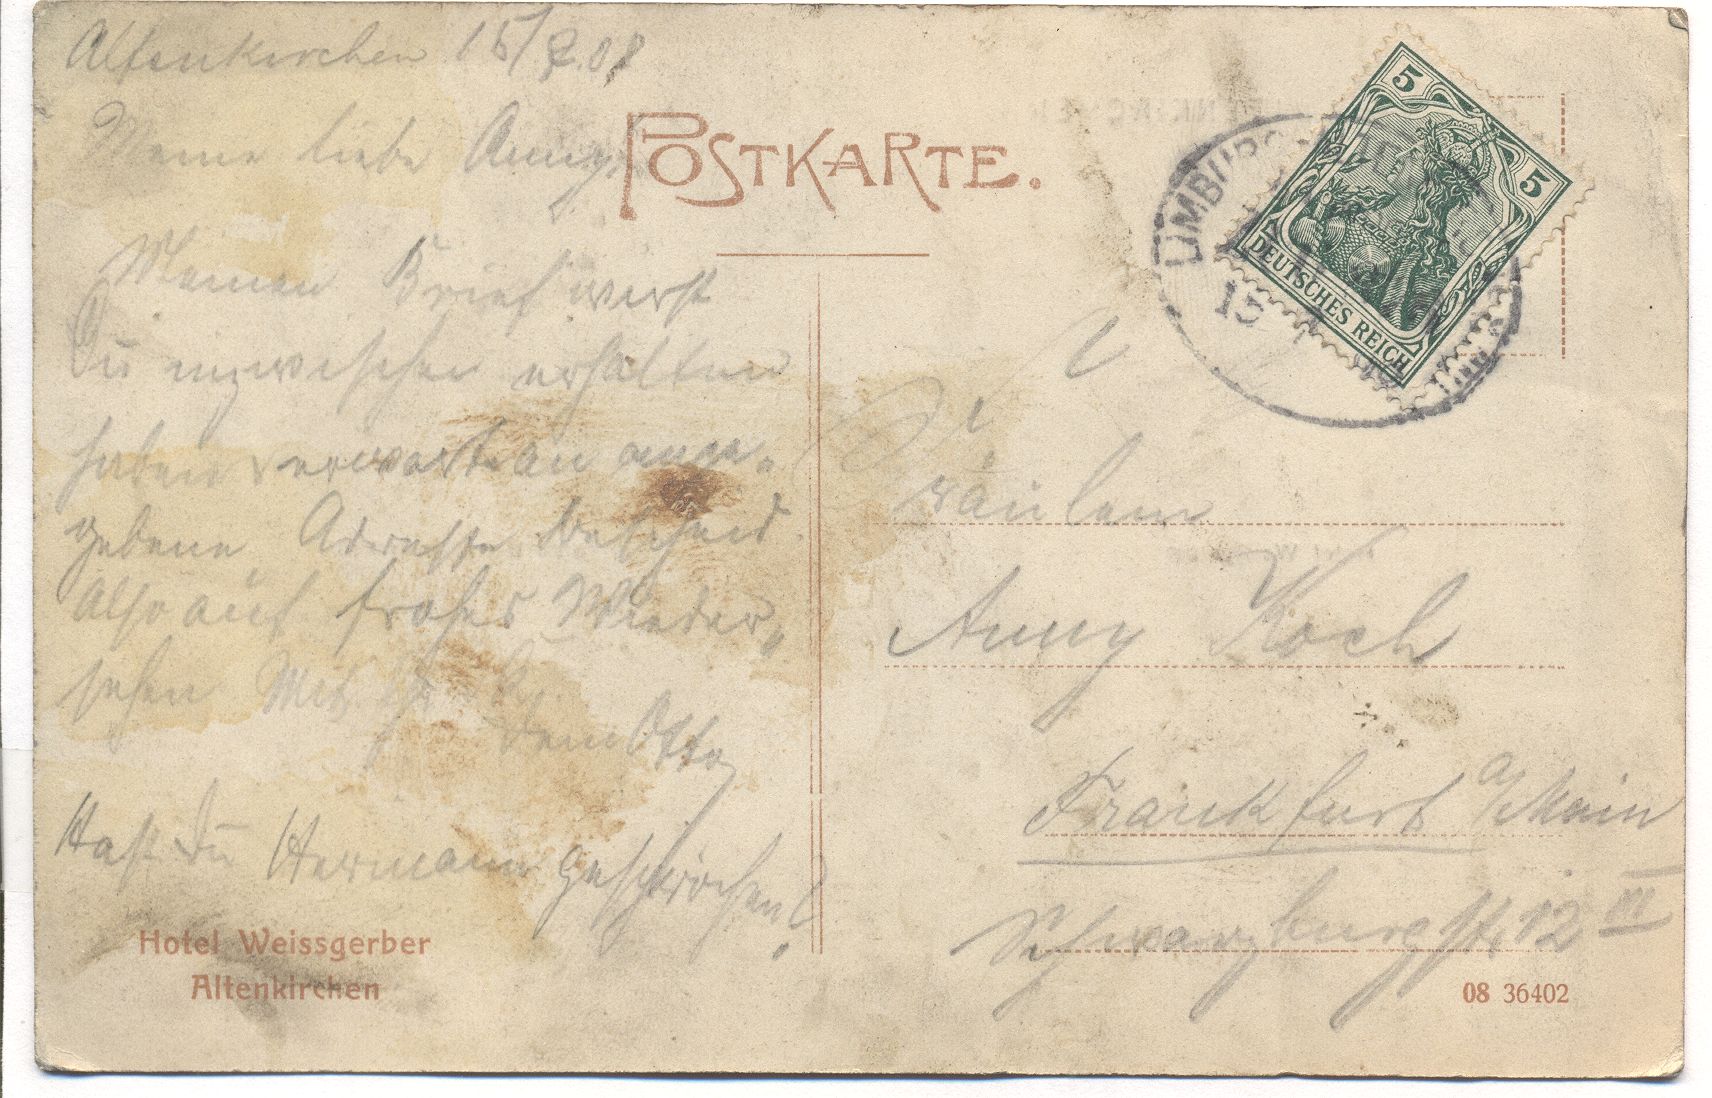 Altenkirchen 15/7.08
Meine liebe Anny,
Meinen Brief wirst
Du inzwischen erhalten
haben erwarte an ange-
gebene Adresse Bescheid.
Also auf frohes Wieder-
sehen Mit
Dein Otto
Hast Du Hermann gesprochen?
Hotel Weissgerber
Altenkirchen
POSTKARTE.
5
5
DEUTSCHES REICH
LIMBURG
Fräulein
Anny Koch
Frankfurt a/Main
Schwarzburgstr. 12 III
08 36402